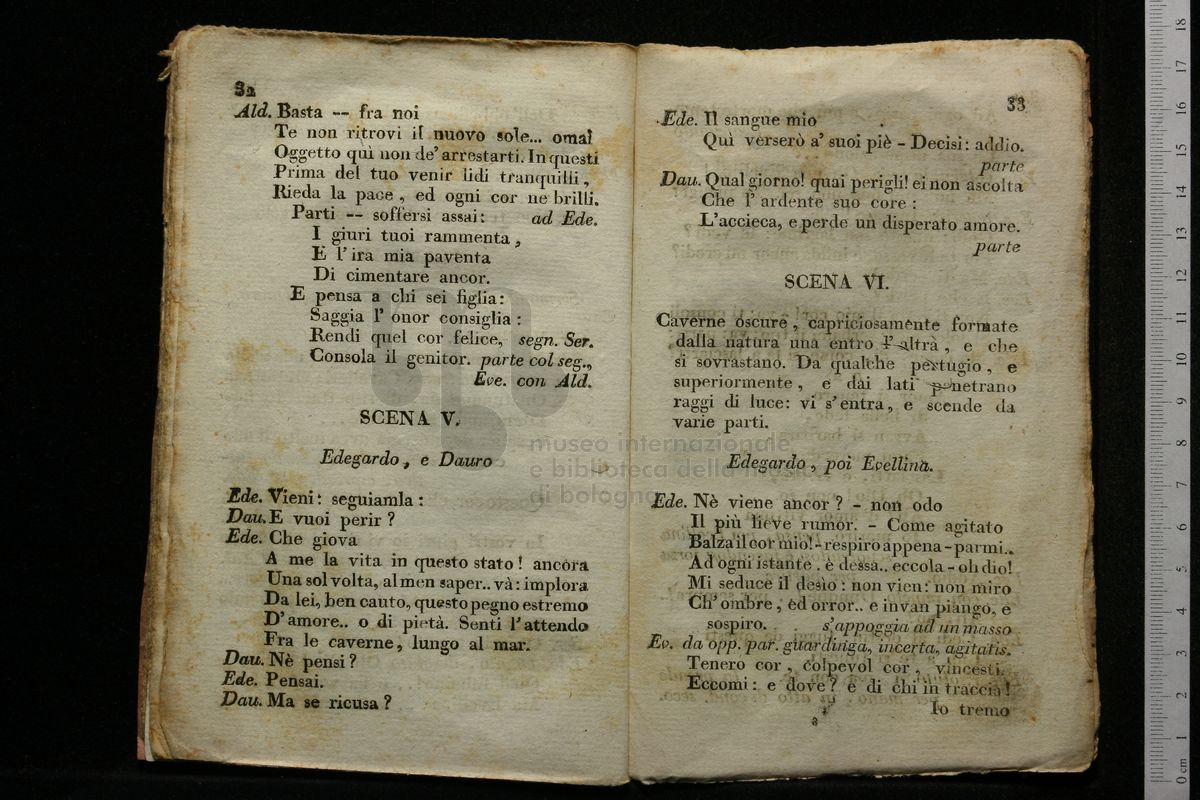 32
Ald. Basta -- fra noi
Te non ritrovi il nuovo sole... omai
Oggetto quì non de' arrestarti. In questi
Prima del tuo venir lidi tranquilli,
Rieda la pace, ed ogni cor ne brilli.
Parti -- soffersi assai: ad Ede.
I giuri tuoi rammenta,
E l' ira mia paventa
Di cimentare ancor.
E pensa a chi sei figlia:
Saggia l' onor consiglia:
Rendi quel cor felice, segn. Ser.
Consola il genitor. parte col seg.,
Eve. con Ald.
SCENA V.
Edegardo, e Dauro
Ede. Vieni: seguiamla:
Dau. E vuoi perir?
Ede. Che giova
A me la vita in questo stato! ancora
Una sol volta, almen saper.. và: implora
Da lei, ben cauto, questo pegno estremo
D'amore.. o di pietà. Senti l'attendo
Fra le caverne, lungo al mar.
Dau. Nè pensi?
Ede. Pensai.
Dau. Ma se ricusa?
33
Ede. Il sangue mio
Quì verserò a' suoi piè - Decisi: addio.
parte
Dau. Qual giorno! quai perigli! ei non ascolta
Che l' ardente suo core:
L'accieca, e perde un disperato amore.
parte
SCENA VI.
Caverne oscure, capriciosamente formate
dalla natura una entro l' altra, e che
si sovrastano. Da qualche pertugio, e
superiormente, e dai lati penetrano
raggi di luce: vi s'entra, e scende da
varie parti.
Edegardo, poi Evellina.
Ede. Nè viene ancor? - non odo
Il più lieve rumor. - Come agitato
Balza il cor mio! - respiro appena - parmi..
Ad ogni istante. è dessa.. eccola - oh dio!
Mi seduce il desìo: non vien: non miro
Ch' ombre, ed orror.. e invan piango, e
sospiro. s'appoggia ad un masso
Ev. da opp. par. guardinga, incerta, agitatis.
Tenero cor, colpevol cor, vincesti.
Eccomi: e dove? e di chi in traccia!
Io tremo
museo internazionale
e biblioteca della musica
di bologna
18
17
16
15
14
13
12
11
10
9
8
7
6
5
4
3
2
1
0 cm